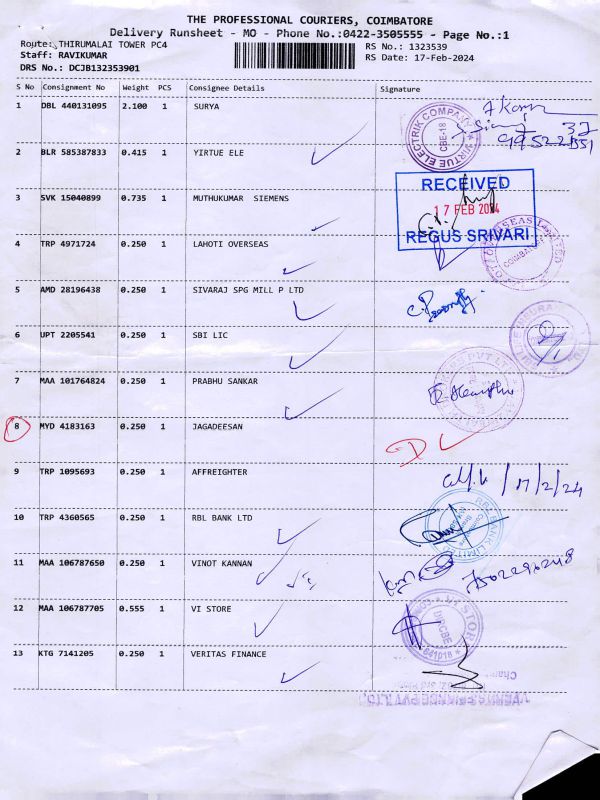 THE PROFESSIONAL COURIERS, COIMBATORE
Delivery Runsheet - MO - Phone No.:0422-3505555 - Page No.:1
Route: THIRUMALAI TOWER PC4
RS No.: 1323539
Staff: RAVIKUMAR
RS Date: 17-Feb-2024
DRS No.: DCJB132353901
S No Consignment No Weight PCS Consignee Details Signature
1 DBL 440131095 2.100 1 SURYA
VIRTUE ELECTRIK COMPANY
CBE-18
2 BLR 585387833 0.415 1 YIRTUE ELE
RECEIVED
17 FEB 2024
REGUS SRIVARI
3 SVK 15040899 0.735 1 MUTHUKUMAR SIEMENS
4 TRP 4971724 0.250 1 LAHOTI OVERSEAS
COIMBATORE
5 AMD 28196438 0.250 1 SIVARAJ SPG MILL P LTD
6 UPT 2205541 0.250 1 SBI LIC
7 MAA 101764824 0.250 1 PRABHU SANKAR
8 MYD 4183163 0.250 1 JAGADEESAN
D
9 TRP 1095693 0.250 1 AFFREIGHTER
17/2/24
10 TRP 4360565 0.250 1 RBL BANK LTD
RBL BANK LIMITED
11 MAA 106787650 0.250 1 VINOT KANNAN
12 MAA 106787705 0.555 1 VI STORE
VI STORE
641018
13 KTG 7141205 0.250 1 VERITAS FINANCE